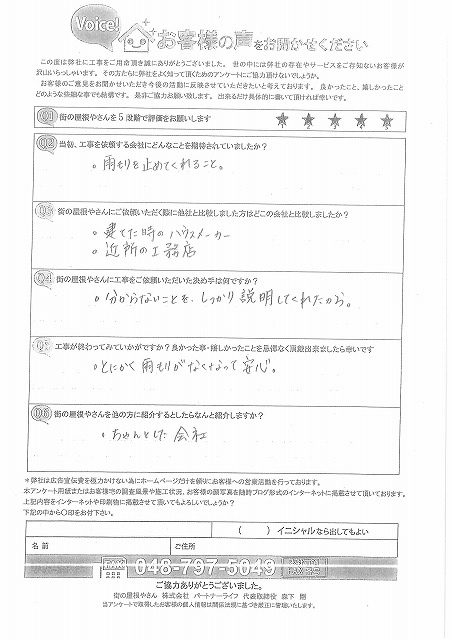 Voice!
お客様の声をお聞かせください
この度は弊社に工事をご用命頂き誠にありがとうございました。世の中には弊社の存在やサービスをご存知ないお客様が
沢山いらっしゃいます。その方たちに弊社をよく知って頂くためのアンケートにご協力頂けないでしょうか。
お客様のご意見をお聞かせいただき今後の活動に反映させていただきたいと考えております。良かったこと、嬉しかったこと
どのような些細な事でも結構です。是非ご協力お願い致します。出来るだけ具体的に書いて頂ければ幸いです。
Q1 街の屋根やさんを5段階で評価をお願いします ★ ★ ★ ★ ★
Q2 当初、工事を依頼する会社にどんなことを期待されていましたか?
。雨もりを止めてくれること。
Q3 街の屋根やさんにご依頼いただく際に他社と比較しました方はどこの会社と比較しましたか?
。建てた時のハウスメーカー
。近所の工務店
Q4 街の屋根やさんに工事をご依頼いただいた決め手は何ですか?
。分からないことを、しっかり説明してくれたから。
Q5 工事が終わってみていかがですか?良かった事・嬉しかったことを忌憚なく頂戴出来ましたら幸いです
。とにかく雨もりがなくなって安心。
Q6 街の屋根やさんを他の方に紹介するとしたらなんと紹介しますか?
。ちゃんとした会社
*弊社は広告宣伝費を極力かけない為にホームページだけを頼りにお客様への営業活動を行っております。
本アンケート用紙またはお客様宅の調査風景や施工状況、お客様の顔写真を随時ブログ形式のインターネットに掲載させて頂いております。
上記内容をインターネットや印刷物に掲載させて頂いてもよろしいでしょうか?
下記の中から〇印をお付け下さい。
( ) イニシャルなら出してもよい
名前 ご住所
048-797-5049
ご協力ありがとうございました。
街の屋根やさん 株式会社 パートナーライフ 代表取締役 森下 剛
当アンケートで取得したお客様の個人情報は関係法規に基づき厳正に管理いたします。